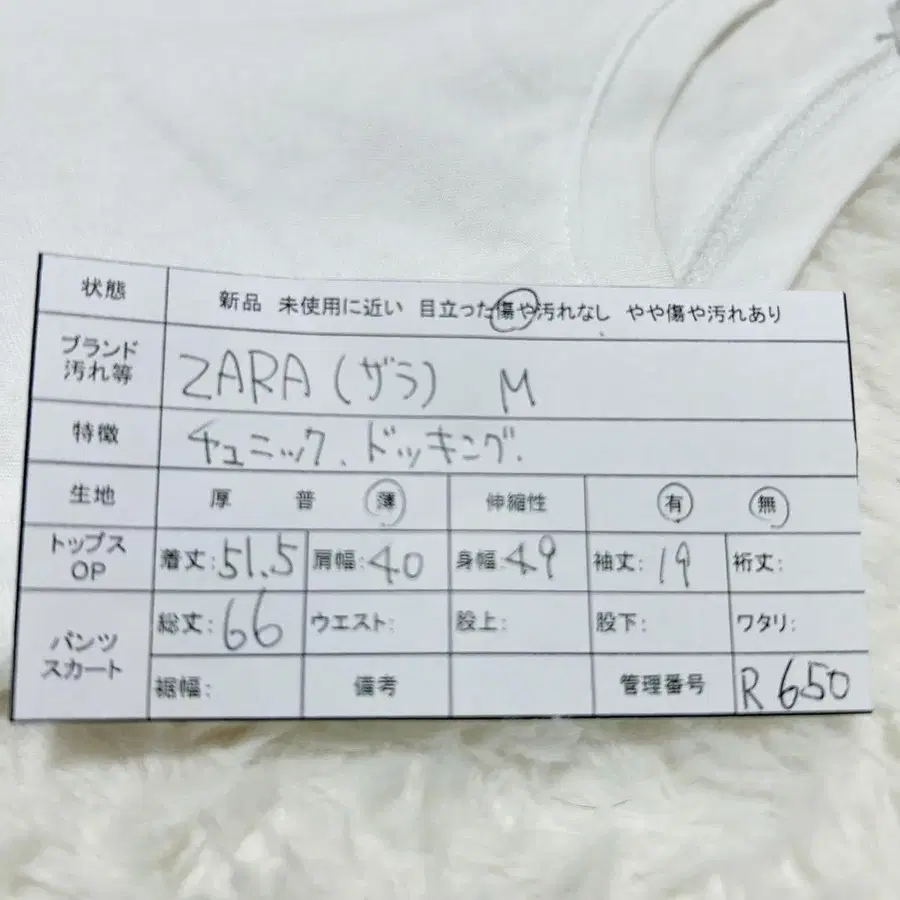 状態 新品 未使用に近い 目立った傷や汚れなし やや傷や汚れあり
ブランド
汚れ等 ZARA (ザラ) M
特徴 チュニック、ドッキング.
生地 厚 普 薄 伸縮性 有 無
トップス
OP 着丈:51.5 肩幅:40 身幅:49 袖丈:19 裄丈:
パンツ
スカート 総丈:66 ウエスト: 股上: 股下: ワタリ:
裾幅: 備考 管理番号 R650